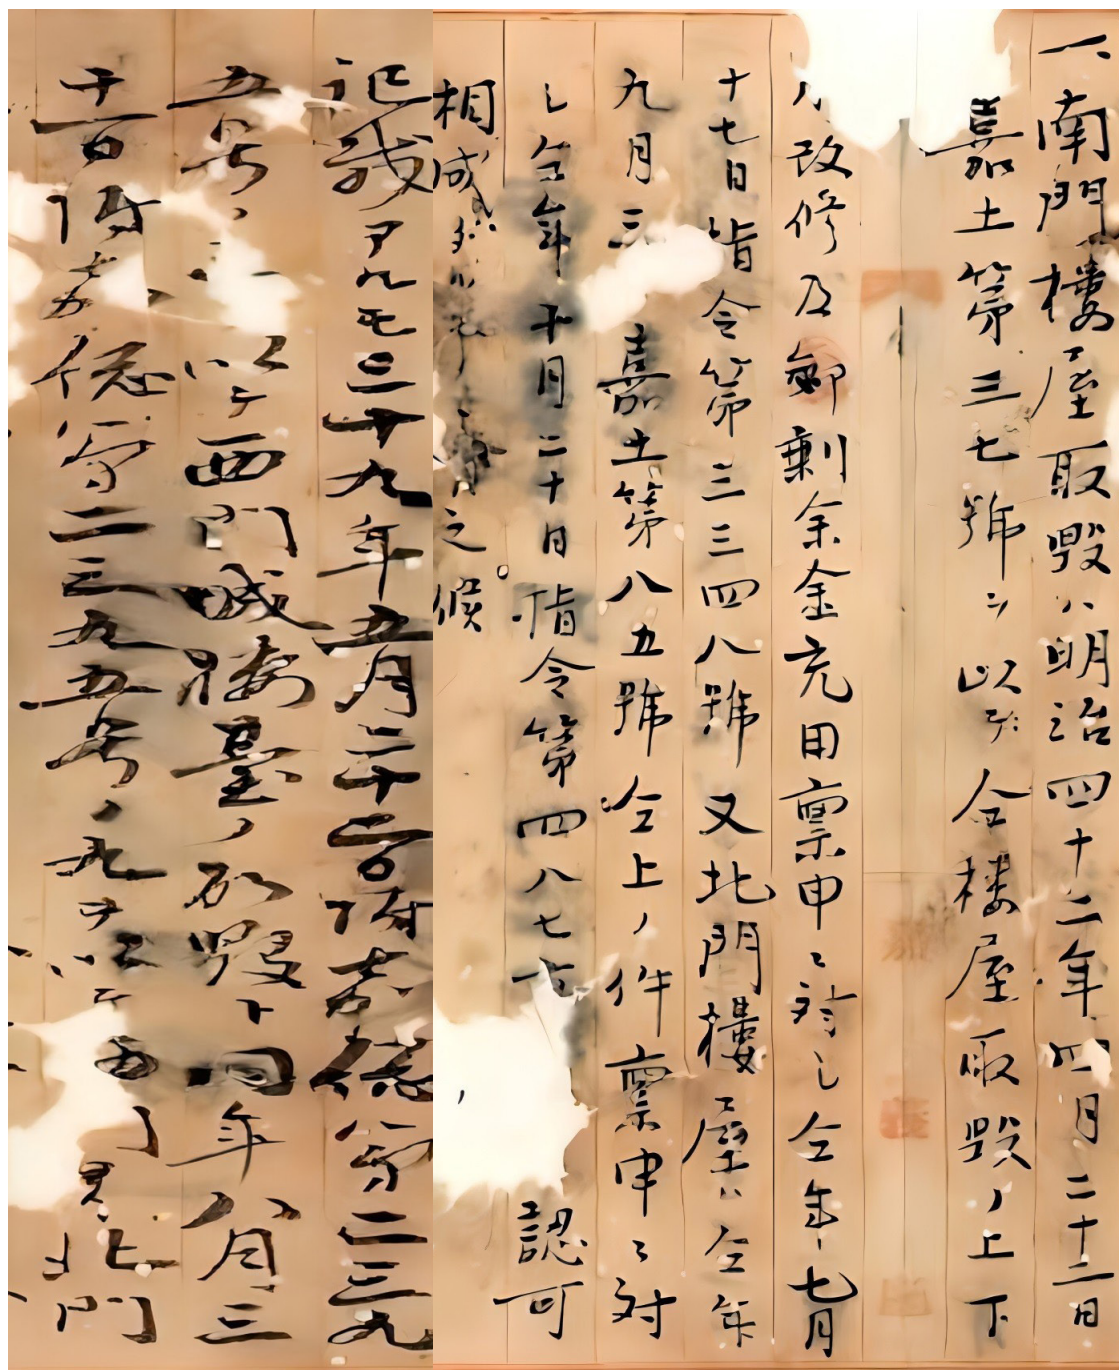 一、南門樓屋取毀ハ明治四十二年四月二十二日
嘉土第三七號ヲ以テ仝楼屋取毀ノ上下
水改修及郷剰余金充用稟申ニ対シ仝年七月
十七日指令第三三四八號又北門樓屋ハ仝年
九月三 嘉土第八五號仝上ノ件稟申ニ対
シ仝年十月二十日指令第四八七 認可
相成 之候
三十九年五月二十二日附嘉総第二三九
五号 以テ西門城楼臺ノ取毀ヲ同年八月三
十一日附嘉総第二三九五号ノ九ヲ以テ 門及北門